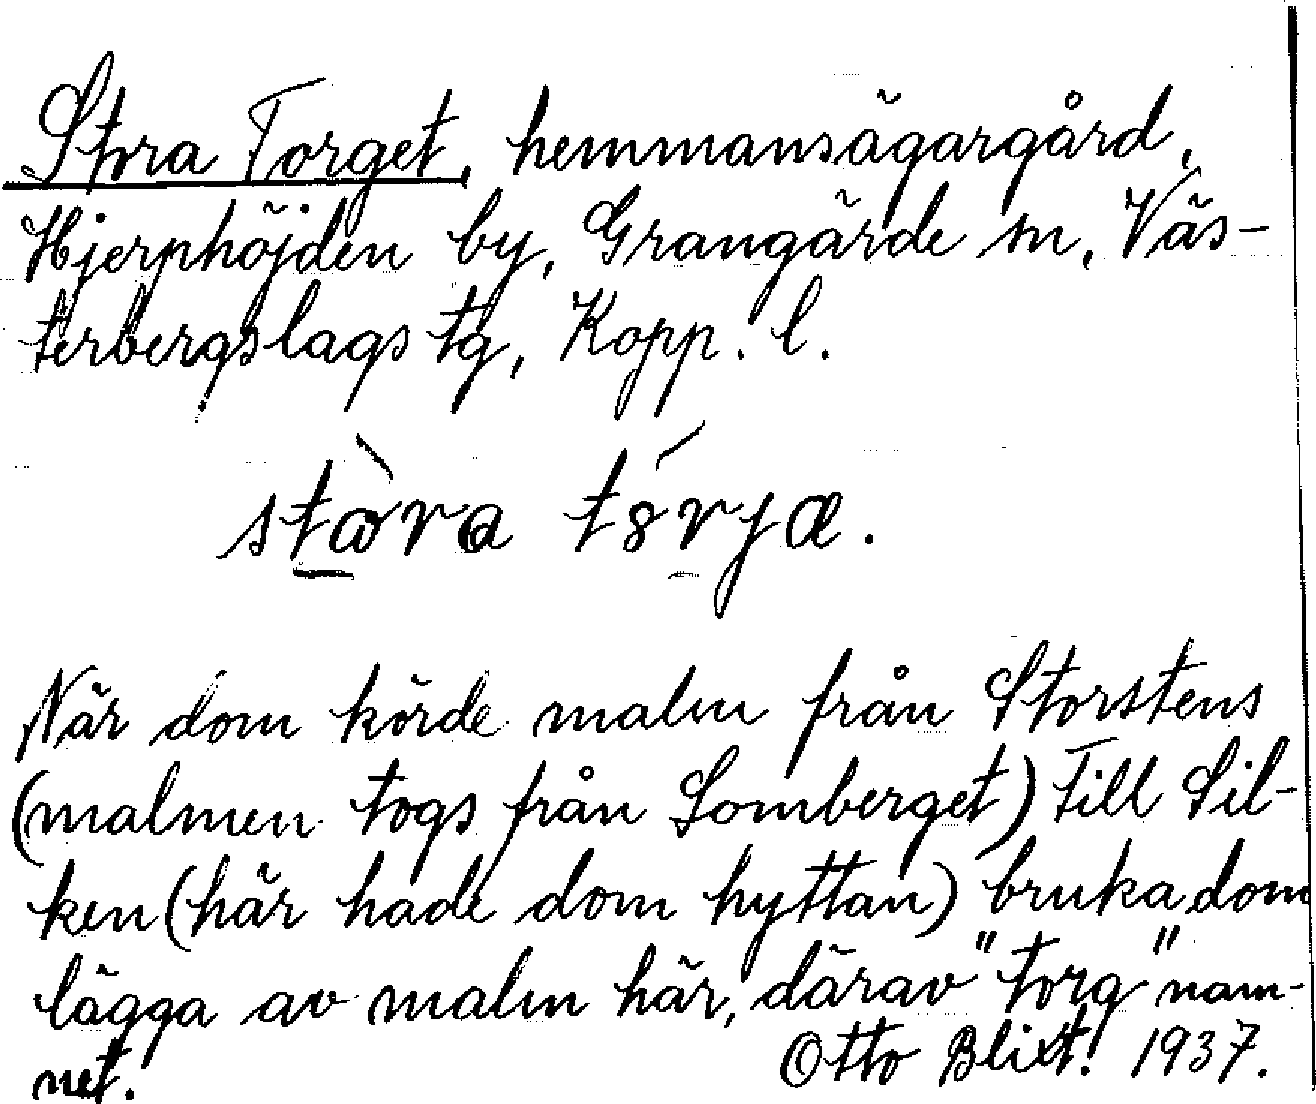 Stora Torget, hemmansägargård,
Hjerphöjden by, Grangärde sn, Väs-
terbergslags tg, Kopp. l.
stɷ̀ra tꝏ́rjæ.
När dom körde malm från Storstens
(malmen togs från Lomberget) till Sil-
ken (här hade dom hyttan) bruka dom
lägga av malm här, därav "torg" nam-
net.
Otto Blixt. 1937.